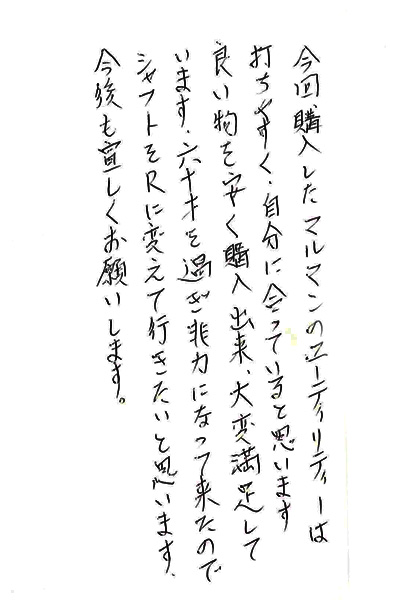 今回、購入したマルマンのユーティリティーは
打ちやすく、自分に合っていると思います
良い物を安く購入出来、大変満足して
います。六十才を過ぎ非力になって来たので
シャフトをRに変えて行きたいと思います。
今後も宜しくお願いします。